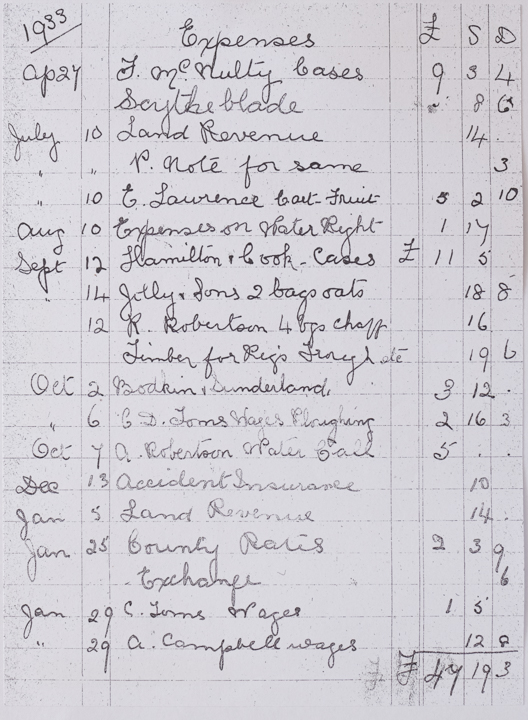 1933 Expenses £ S D
Ap 27 F. McNulty Cases 9 3 4
Scythe blade . 8 6
July 10 Land Revenue 14 .
" " P. Note for same 3
" 10 E. Lawrence Cart-Fruit 5 2 10
Aug 10 Expenses on Water Right 1 17
Sept 12 Hamilton & Cook - Cases £ 11 5
" 14 Jolly & Sons 2 bags oats 18 8
12 R. Robertson 4 bgs chaff 16
Timber for Pigs Trough etc 19 6
Oct 2 Bodkin & Sunderland, 3 12 .
" 6 C. D. Toms Wages Ploughing 2 16 3
Oct 7 A. Robertson Water 5 . .
Dec 13 Accident Insurance 10
Jan 5 Land Revenue 14 .
Jan 25 County Rates 2 3 9
. Exchange 6
Jan 29 C. Toms Wages 1 5
" 29 A. Campbell wages 12
£ 47 19 3